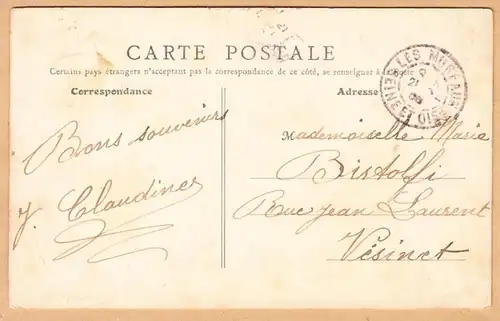 CARTE POSTALE
Certains pays étrangers n'acceptant pas la correspondance de ce côté, se renseigner à la Poste
Correspondance
Adresse
LES MUREAUX
SEINE ET OISE
21
Bons souvenirs
J. Claudines
Mademoiselle Marie
Bistolfi
Rue Jean Laurent
Vésinet